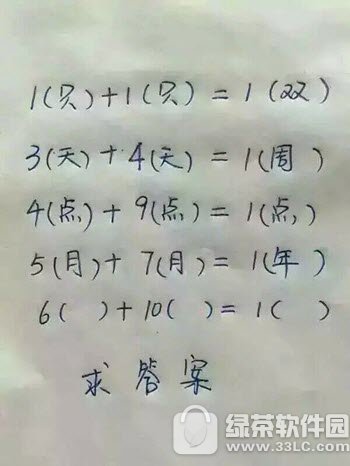 1(只)+1(只)=1(双)
3(天)+4(天)=1(周)
4(点)+9(点)=1(点)
5(月)+7(月)=1(年)
6( )+10( )=1( )
求答案
绿茶软件园
www.33LC.com